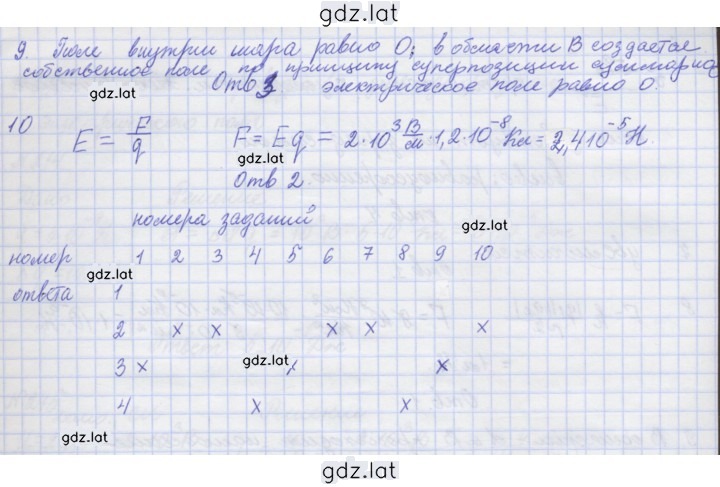 gdz.lat
9 Поле внутри шара равно 0; в области В создается
собственное поле по принципу суперпозиции суммарное
Отв 3. электрическое поле равно 0.
gdz.lat
10 E = F/q F = Eq = 2·10³ В/м · 1,2·10⁻⁸ Кл = 2,4·10⁻⁵ Н.
gdz.lat
Отв 2.
номера заданий
gdz.lat
номер 1 2 3 4 5 6 7 8 9 10
gdz.lat
ответа 1
2 x x x x x
3 x x x
gdz.lat
4 x x
gdz.lat
gdz.lat